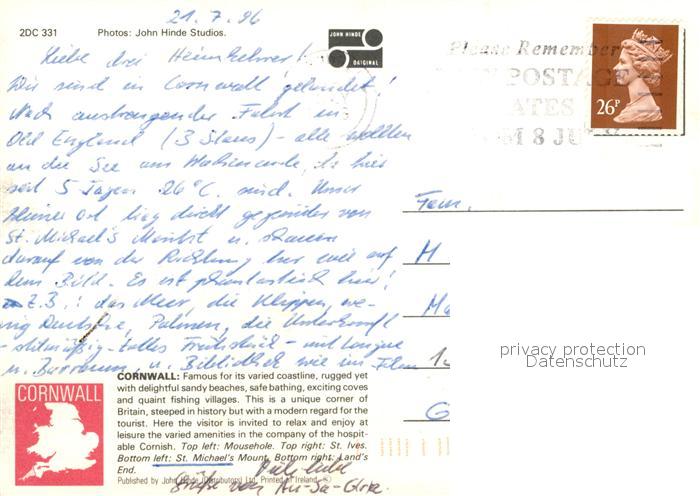 21.7.96
2DC 331 Photos: John Hinde Studios.
JOHN HINDE
ORIGINAL
Liebe drei Heimkehrer!
Wir sind in Cornwall gelandet!
Nach anstrengender Fahrt in
Old England (3 Staus) - alle wollten
an die See am Wochenende, da hier
seit 5 Tagen 26°C sind. Unser
kleiner Ort liegt direkt gegenüber von
St. Michael's Mount u. schauen
darauf von der Richtung her wie auf
dem Bild. Es ist phantastisch hier!
Z.B.: das Meer, die Klippen, we-
nig Deutsche, Palmen, die Unterkunft
- stilmäßig - tolles Frühstück - mit Lounge
u. Barraum, u. Bibliothek wie im Film
Please Remember
POSTAGE
M 8 JU
26P
Fam.
H
M
1
G
privacy protection
Datenschutz
CORNWALL
CORNWALL: Famous for its varied coastline, rugged yet
with delightful sandy beaches, safe bathing, exciting coves
and quaint fishing villages. This is a unique corner of
Britain, steeped in history but with a modern regard for the
tourist. Here the visitor is invited to relax and enjoy at
leisure the varied amenities in the company of the hospit-
able Cornish. Top left: Mousehole. Top right: St. Ives.
Bottom left: St. Michael's Mount. Bottom right: Land's
End.
Published by John Hinde (Distributors) Ltd. Printed in Ireland.
Viele liebe
Grüße von